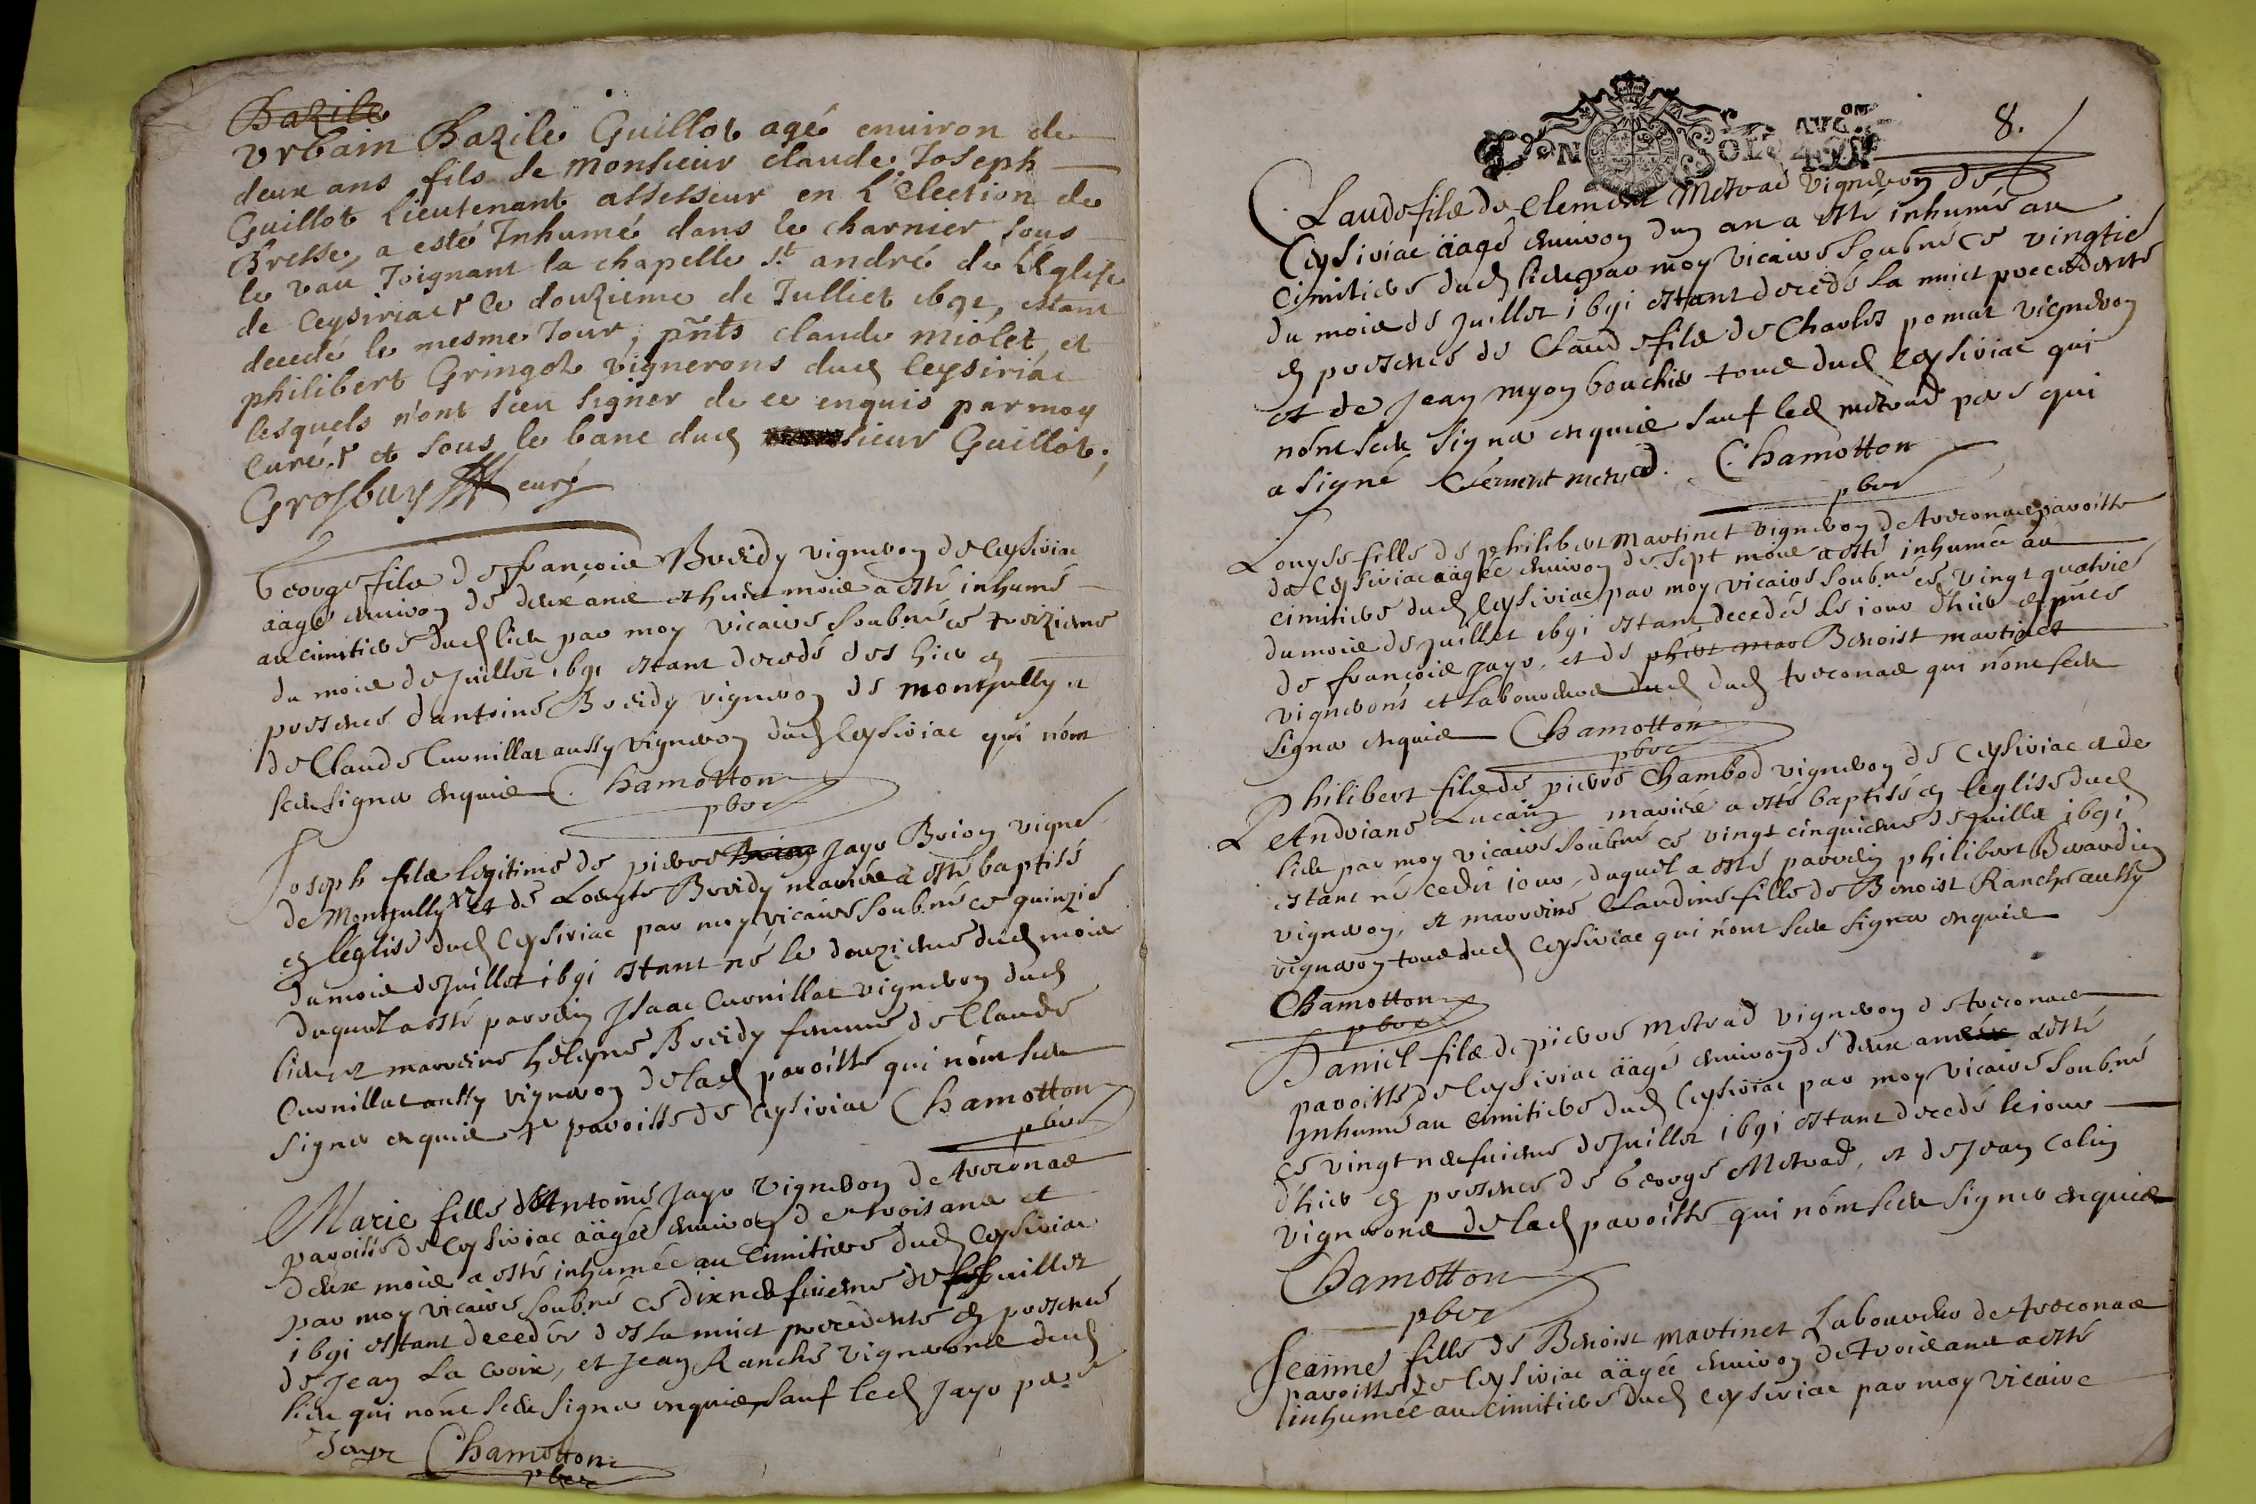 Bazile
Urbain Bazile Guillot agé environ de
deux ans fils de Monsieur claude Joseph
Guillot Lieutenant assesseur en L'Election de
Bresse, a esté Inhumé dans le charnier sous
le vau Joignant la chapelle st andré de L'Eglise
de Ceysiriat ce douzieme de Julliet 1691, estant
decedé le mesme Jour, pnts claude miolet et
philibert Gringoz vignerons dud Ceysiriac
lesquels n'ont sceu signer de ce enquis par moy
Curé. et sous le banc dud sieur Guillot.
Grosbuy curé
George fils de françois Breidy vigneron de Ceysiriac
äagé environ de deux ans et huict mois a esté inhumé
au cimitiere dud lieu par moy vicaire soubné ce treizieme
du mois de Juillet 1691 estant decedé des hier en
presence d'antoine Breidy vigneron de montjully et
de Claude Curnillat aussy vigneron dud Ceysiriac qui n'ont
sceu signer enquis Chamotton
pbre
Joseph fils legitime de pierre Brion Jayr Brion vigne
de Montjully et de Louyse Breidy mariés a esté baptisé
en léglise dud Ceysiriac par moy vicaire soubné ce quinzie
du mois de Juillet 1691 estant né le douzieme dud mois
duquel a esté parrein Isaac Curnillat vigneron dud
lieu et marreine heleyne Breidy femme de Claude
Curnillat aussy vigneron de lad paroisse qui n'ont sceu
signer enquis paroisse de Ceysiriac Chamotton
pbre
Marie fille d'Antoine Jayr vigneron de treconas
paroisse de Ceysiriac äagée environ de trois ans et
deux mois a esté inhumée au Cimitiere dud Ceysiriac
par moy vicaire soubné ce dixneufvieme de Juillet
1691 estant decedée des la nuict precedente en presence
de Jean La croix, et Jean Ranche vignerons dud
lieu qui n'ont sceu signer enquis, sauf led Jayr pere
Jayr Chamotton
pbre
GEN SOLS
8.
Claude fils de Clement Metrad vigneron de
Ceysiriac äagé environ dun an a esté inhumé au
Cimitiere dud lieu par moy vicaire soubné ce vingtie
du mois de Juillet 1691 estant decedé la nuict precedente
en presence de Claude fils de Charles pomat vigneron
et de Jean myon bouchier tous dud Ceysiriac qui
n'ont sceu signer enquis sauf led metrad pere qui
a signé Clément metrad. Chamotton
pbre
Louyse fille de philibert Martinet vigneron de treconas paroisse
de Ceysiriac äagée environ de sept mois a esté inhumée au
cimitiere dud Ceysiriac par moy vicaire soubné ce vingt quatrie
du mois de Juillet 1691 estant decedée le iour d'hier en pnce
de françois Jayr, et de phibt mar Benoist martinet
vignerons et Laboureurs dud dud treconas qui n'ont sceu
signer enquis Chamotton
pbre
Philibert fils de pierre Chambod vigneron de Ceysiriac et de
Andriane Lucain mariés a esté baptisé en leglise dud
lieu par moy vicaire soubné ce vingt cinquieme de Juillet 1691
estant né ce dit iour, duquel a esté parrein philibert Berardin
vigneron, et marreine Claudine fille de Benoist Ranche aussy
vigneron tous dud Ceysiriac qui n'ont sceu signer enquis
Chamotton
pbre
Daniel fils de pierre Metrad vigneron de treconas
paroisse de Ceysiriac äagé environ de deux ans a esté
Inhumé au Cimitiere dud Ceysiriac par moy vicaire soubné
ce vingt neufvieme de Juillet 1691 estant decedé le iour
d'hier en presence de George Metrad, et de Jean Colin
vignerons de lad paroisse qui n'ont sceu signer enquis
Chamotton
pbre
Jeanne fille de Benoist martinet Laboureur de treconas
paroisse de Ceysiriac äagée environ de trois ans a esté
inhumée au Cimitiere dud Ceysiriac par moy vicaire